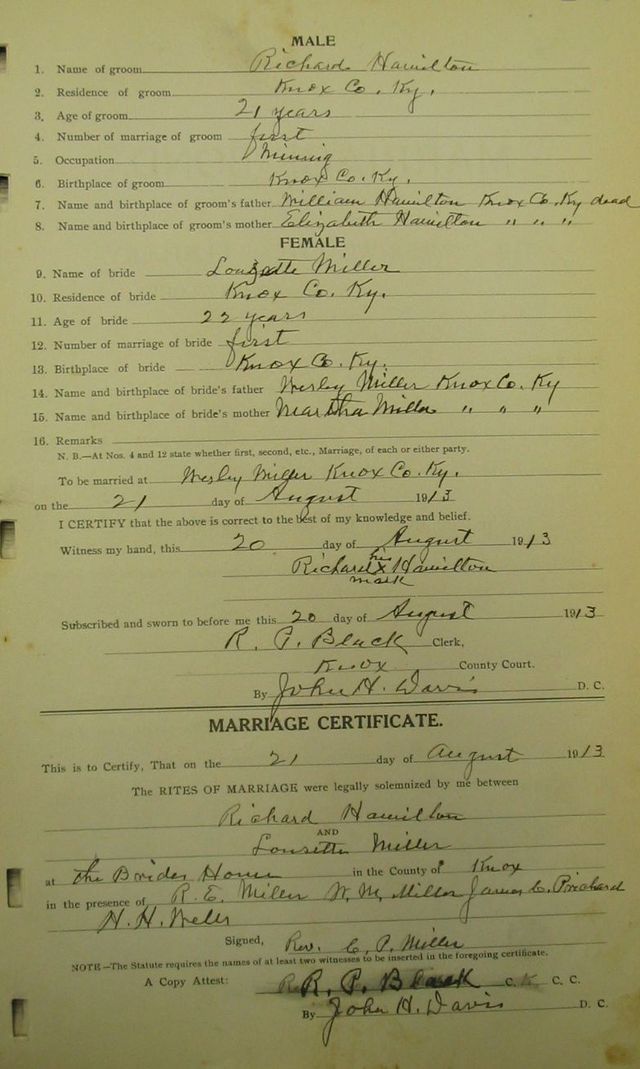 MALE
1. Name of groom Richard Hamilton
2. Residence of groom Knox Co. Ky.
3. Age of groom 21 years
4. Number of marriage of groom first
5. Occupation Mining
6. Birthplace of groom Knox Co. Ky.
7. Name and birthplace of groom's father William Hamilton Knox Co. Ky dead
8. Name and birthplace of groom's mother Elizabeth Hamilton " " "
FEMALE
9. Name of bride Miller
10. Residence of bride Knox Co. Ky.
11. Age of bride 22 years
12. Number of marriage of bride first
13. Birthplace of bride Knox Co. Ky.
14. Name and birthplace of bride's father Wesly Miller Knox Co. Ky
15. Name and birthplace of bride's mother Martha Miller " " "
16. Remarks
N. B.—At Nos. 4 and 12 state whether first, second, etc., Marriage, of each or either party.
To be married at Wesly Miller Knox Co. Ky.
on the 21 day of August 1913
I CERTIFY that the above is correct to the best of my knowledge and belief.
Witness my hand, this 20 day of August 1913
Richard his x Hamilton
mark
Subscribed and sworn to before me this 20 day of August 1913
R. P. Black Clerk,
Knox County Court.
By John H. Davis D. C.
MARRIAGE CERTIFICATE.
This is to Certify, That on the 21 day of August 1913
The RITES OF MARRIAGE were legally solemnized by me between
Richard Hamilton
AND
Lousetta Miller
at the Brides Home in the County of Knox
in the presence of R. E. Miller W. M. Miller James C. Prichard
H. H. Wells
Signed, Rev. C. P. Miller
NOTE—The Statute requires the names of at least two witnesses to be inserted in the foregoing certificate.
A Copy Attest: R. P. Black C. K C. C.
By John H. Davis D. C.